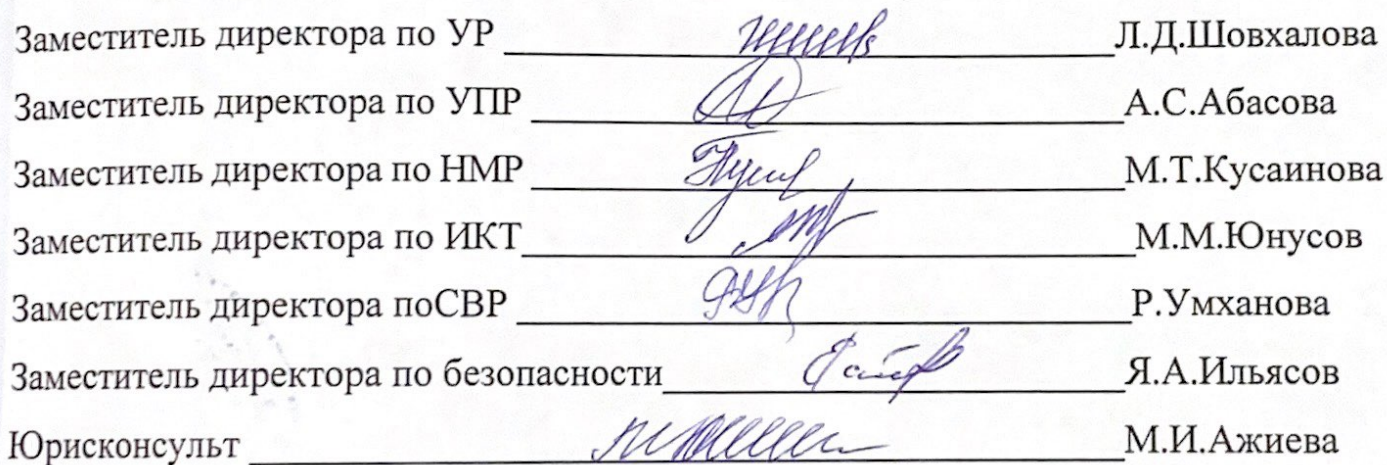 Заместитель директора по УР Л.Д.Шовхалова
Заместитель директора по УПР А.С.Абасова
Заместитель директора по НМР М.Т.Кусаинова
Заместитель директора по ИКТ М.М.Юнусов
Заместитель директора поСВР Р.Умханова
Заместитель директора по безопасности Я.А.Ильясов
Юрисконсульт М.И.Ажиева